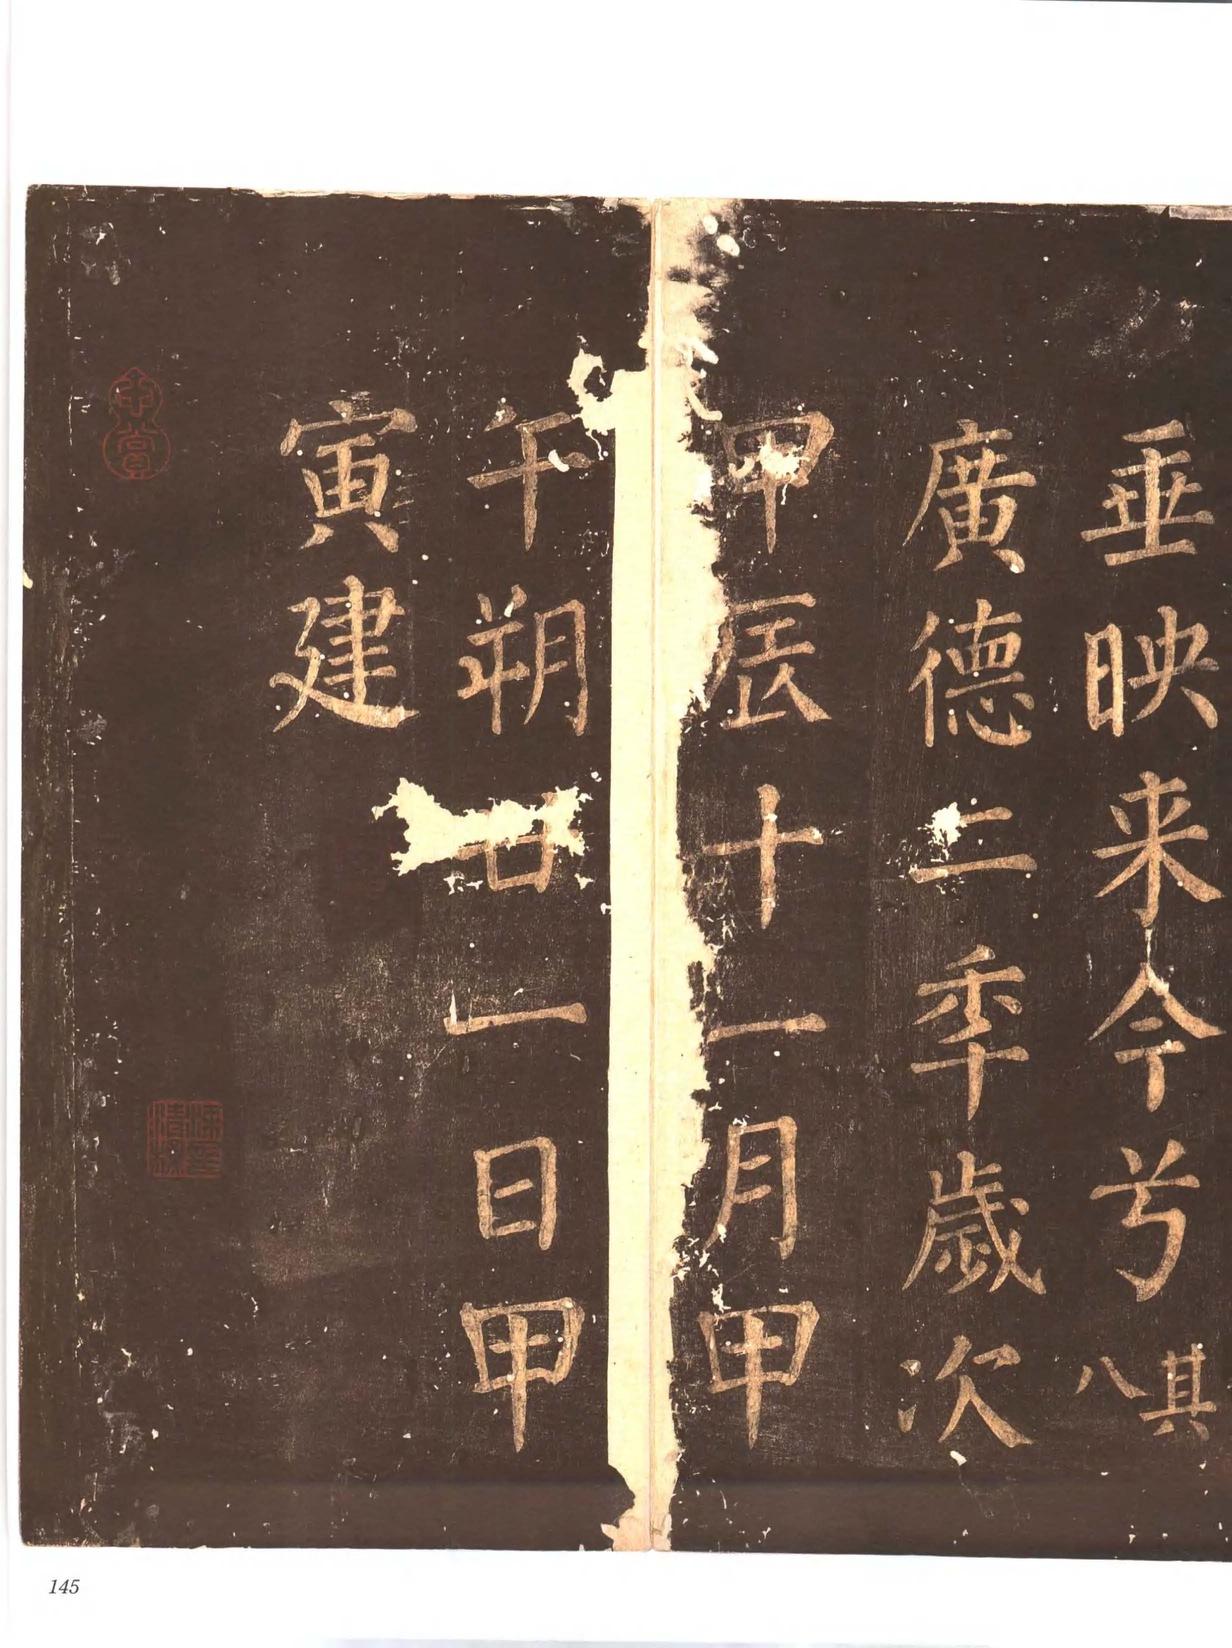 垂映来今兮其八
廣德二秊歲次
甲辰十一月甲
午朔廿一日甲
寅建
145